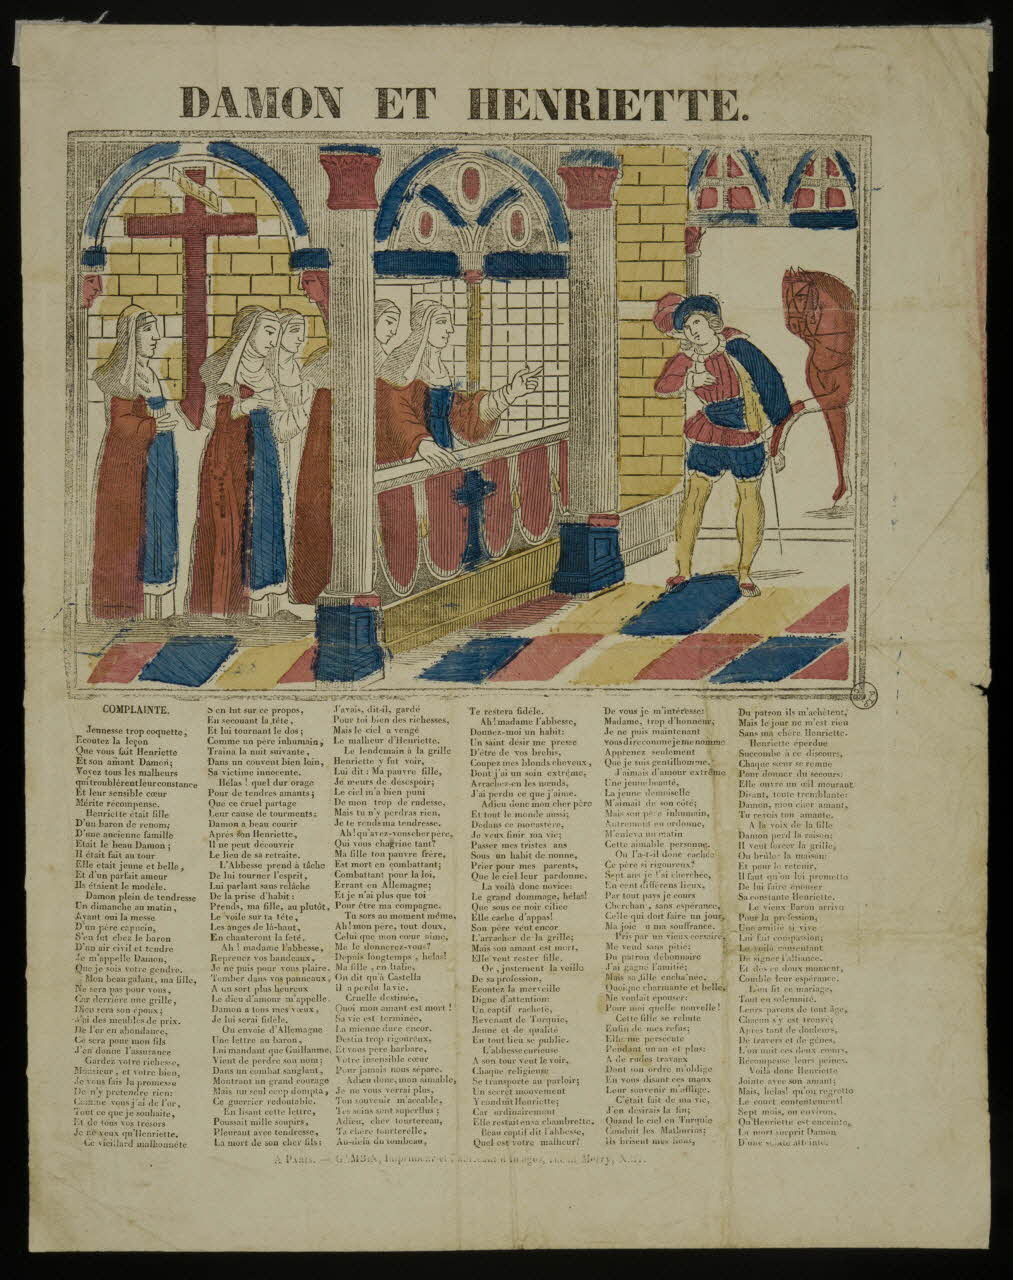 DAMON ET HENRIETTE.
COMPLAINTE.
Jeunesse trop coquette,
Ecoutez la leçon
Que vous fait Henriette
Et son amant Damon;
Voyez tous les malheurs
qui troublèrent leur constance
Et leur sensible cœur
Mérite récompense.
Henriette était fille
D'un baron de renom;
D'une ancienne famille
Etait le beau Damon;
Il était fait au tour
Elle était jeune et belle,
Et d'un parfait amour
Ils étaient le modèle.
Damon plein de tendresse
Un dimanche au matin,
Ayant ouï la messe
D'un père capucin,
S'en fut chez le baron
D'un air civil et tendre
Je m'appelle Damon,
Que je sois votre gendre.
Mon beau galant, ma fille,
Ne sera pas pour vous,
Car derrière une grille,
Dieu sera son époux;
J'ai des meubles de prix.
De l'or en abondance,
Ce sera pour mon fils
J'en donne l'assurance
Gardez votre richesse,
Monsieur, et votre bien,
Je vous fais la promesse
De n'y prétendre rien:
Comme vous j'ai de l'or,
Tout ce que je souhaite,
Et de tous vos trésors
Je ne veux qu'Henriette.
Ce vieillard malhonnête
S'en fut sur ce propos,
En secouant la tête,
Et lui tournant le dos;
Comme un père inhumain,
Traîna la nuit suivante,
Dans un couvent bien loin,
Sa victime innocente.
Hélas! quel dur orage
Pour de tendres amants;
Que ce cruel partage
Leur cause de tourments;
Damon a beau courir
Après son Henriette,
Il ne peut découvrir
Le lieu de sa retraite.
L'Abbesse prend à tâche
De lui tourner l'esprit,
Lui parlant sans relâche
De la prise d'habit:
Prends, ma fille, au plutôt,
Le voile sur ta tête,
Les anges de là-haut,
En chanteront la fête.
Ah! madame l'abbesse,
Reprenez vos bandeaux,
Je ne puis pour vous plaire.
Tomber dans vos panneaux,
A un sort plus heureux
Le dieu d'amour m'appelle
Damon a tous mes vœux,
Je lui serai fidèle.
On envoie d'Allemagne
Une lettre au baron,
Lui mandant que Guillaume,
Vient de perdre son nom;
Dans un combat sanglant,
Montrant un grand courage
Mais un seul coup dompta,
Ce guerrier redoutable.
En lisant cette lettre,
Poussait mille soupirs,
Pleurant avec tendresse,
La mort de son cher fils:
J'avais, dit-il, gardé
Pour toi bien des richesses,
Mais le ciel a vengé
Le malheur d'Henriette.
Le lendemain à la grille
Henriette y fut voir,
Lui dit: Ma pauvre fille,
Je meurs de désespoir;
Le ciel m'a bien puni
De mon trop de rudesse,
Mais tu n'y perdras rien,
Je te rends ma tendresse.
Ah! qu'avez-vous cher père,
Qui vous chagrine tant?
Ma fille ton pauvre frère,
Est mort en combattant;
Combattant pour la loi,
Errant en Allemagne;
Et je n'ai plus que toi
Pour être ma compagne.
Tu sors au moment même,
Ah! mon père, tout doux,
Celui que mon cœur aime,
Me le donnerez-vous?
Depuis longtemps, hélas!
Ma fille, en Italie,
On dit qu'à Castella
Il a perdu la vie.
Cruelle destinée,
Quoi mon amant est mort!
Sa vie est terminée,
La mienne dure encor.
Destin trop rigoureux,
Et vous père barbare,
Votre insensible cœur
Pour jamais nous sépare.
Adieu donc, mon aimable,
Je ne vous verrai plus,
Ton souvenir m'accable,
Tes soins sont superflus;
Adieu, cher tourtereau,
Ta chère tourterelle,
Au-delà du tombeau,
Te restera fidèle.
Ah! madame l'abbesse,
Donnez-moi un habit:
Un saint désir me presse
D'être de vos brebis,
Coupez mes blonds cheveux,
Dont j'ai un soin extrême,
Arrachez-en les nœuds,
J'ai perdu ce que j'aime.
Adieu donc mon cher père
Et tout le monde aussi;
Dedans ce monastère,
Je veux finir ma vie;
Passer mes tristes ans
Sous un habit de nonne,
Prier pour mes parents,
Que le ciel leur pardonne.
La voilà donc novice:
Le grand dommage, hélas!
Que sous ce noir cilice
Elle cache d'appas!
Son père veut encor
L'arracher de la grille;
Mais son amant est mort,
Elle veut rester fille.
Or, justement la veille
De sa profession,
Ecoutez la merveille
Digne d'attention:
Un captif racheté,
Revenant de Turquie,
Jeune et de qualité
En tout lieu se publie.
L'abbesse curieuse
A son tour veut le voir,
Chaque religieuse
Se transporte au parloir;
Un secret mouvement
Y conduit Henriette;
Car ordinairement
Elle restait en sa chambrette.
Beau captif dit l'abbesse,
Quel est votre malheur?
De vous je m'intéresse:
Madame, trop d'honneur,
Je ne puis maintenant
Vous dire comme je me nomme
Apprenez seulement
Que je suis gentilhomme.
J'aimais d'amour extrême
Une jeune beauté,
La jeune demoiselle
M'aimait de son côté;
Mais son père inhumain,
Autrement en ordonne,
M'enleva un matin
Cette aimable personne.
Où l'a-t-il donc cachée
Ce père si rigoureux?
Sept ans je l'ai cherchée,
En cent différens lieux,
Par tout pays je cours
Cherchant, sans espérance,
Celle qui doit faire un jour,
Ma joie ou ma souffrance.
Pris par un vieux corsaire,
Me vend sans pitié;
Du patron débonnaire
J'ai gagné l'amitié;
Mais sa fille enchaînée,
Quoique charmante et belle,
Me voulait épouser:
Pour moi quelle nouvelle!
Cette fille se rebute
Enfin de mes refus;
Elle me persécute
Pendant un an et plus:
A de rudes travaux
Dont son ordre m'oblige
En vous disant ces maux
Leur souvenir m'afflige.
C'était fait de ma vie,
J'en désirais la fin;
Quand le ciel en Turquie
Conduit les Mathurins;
Ils brisent mes liens,
Du patron ils m'achètent,
Mais le jour ne m'est rien
Sans ma chère Henriette.
Henriette éperdue
Succombe à ce discours,
Chaque sœur se remue
Pour donner du secours:
Elle ouvre un œil mourant
Disant, toute tremblante:
Damon, mon cher amant,
Tu revois ton amante.
A la voix de la fille
Damon perd la raison;
Il veut forcer la grille,
Ou brûler la maison;
Et pour le retenir,
Il faut qu'on lui promette
De lui faire épouser
Sa constante Henriette.
Le vieux Baron arriva
Pour la profession,
Une amitié si vive
Lui fait compassion;
Le voilà consentant
De signer l'alliance.
Et dès ce doux moment,
Comble leur espérance.
L'on fit ce mariage,
Tout en solennité.
Leurs parens de tout âge,
Chacun s'y est trouvé;
Après tant de douleurs,
De travers et de gênes,
L'on unit ces deux cœurs,
Récompense leurs peines.
Voilà donc Henriette
Jointe avec son amant;
Mais, hélas! qu'on regrette
Le court contentement!
Sept mois, ou environ,
Qu'Henriette est enceinte,
La mort surprit Damon
D'une subite atteinte.
A PARIS. — GAMBIN, Imprimeur et Fabricant d'Images,